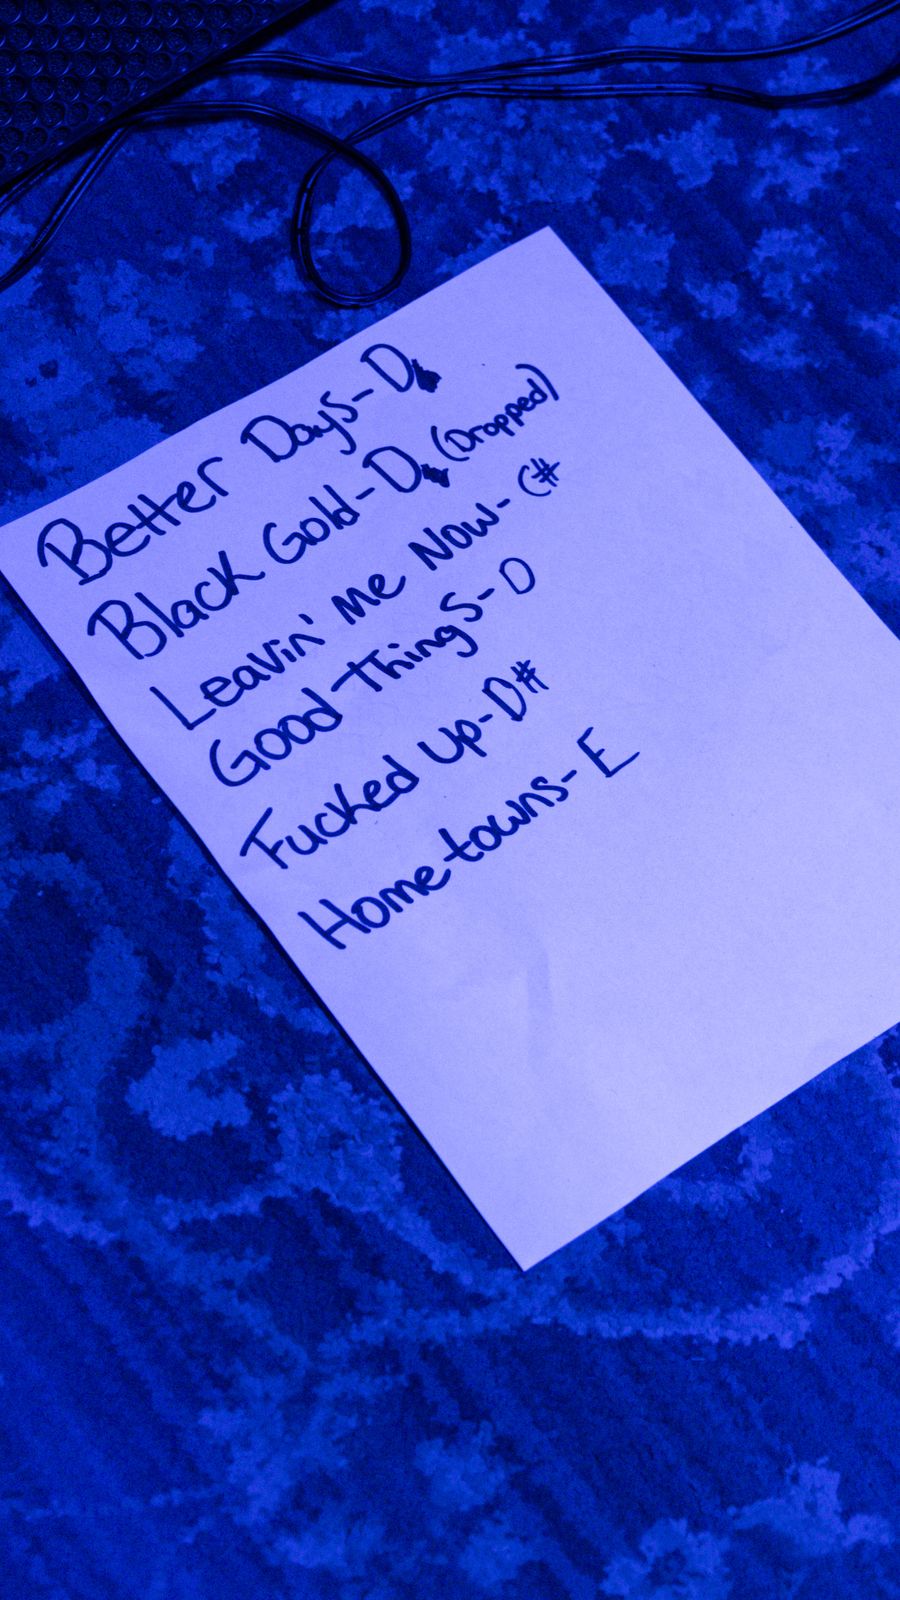 Better Days- D
Black Gold- D (Dropped)
Leavin' Me Now- C#
Good Things- D
Fucked Up- D#
Hometowns- E